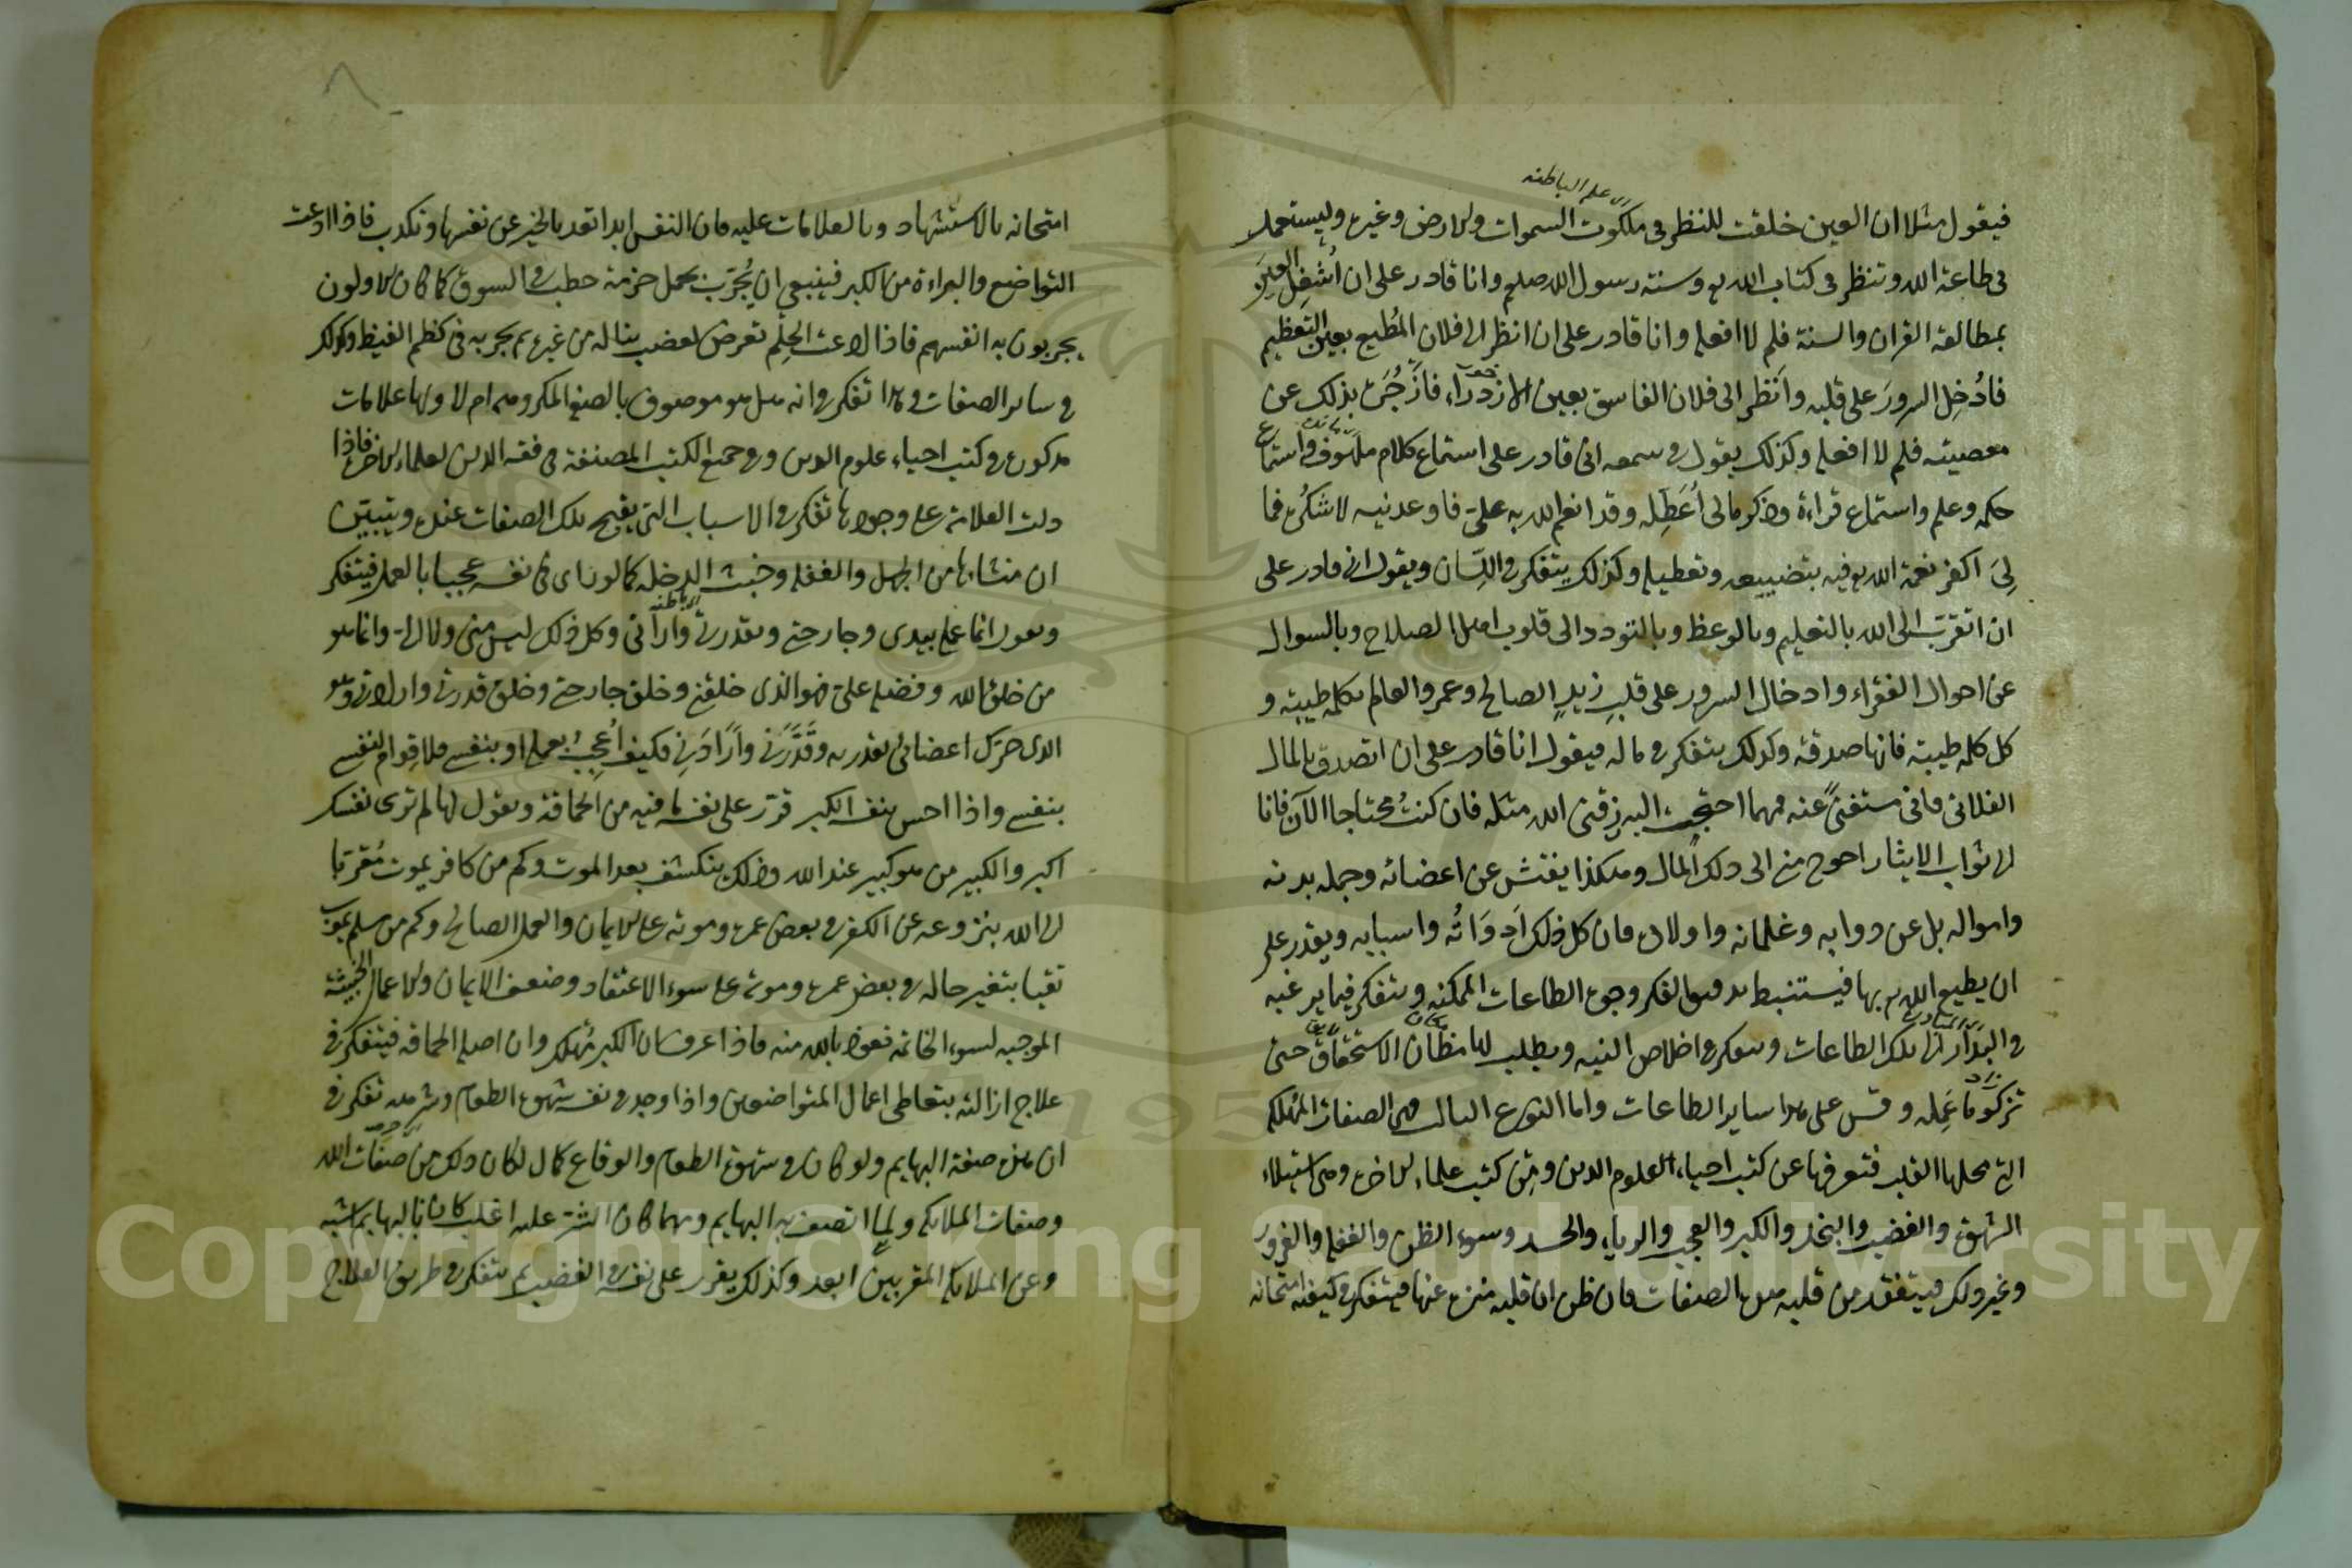 فيقول مثلا ان العين خلقت للنظر في ملكوت السموات والارض وغيره وليستعمل
في طاعة الله وتنظر في كتاب الله تع وسنة رسول الله صلعم وانا قادر على ان أشغل العين
بمطالعة القران والسنة فلم لا افعله وانا قادر على ان انظر الى فلان المطيع بعين التعظيم
فادخل السرور على قلبه وانظر الى فلان الفاسق بعين الازدراء فازجره بذلك عن
معصيته فلم لا افعله وكذلك يقول في سمعه اني قادر على استماع كلام ملهوف واستماع
حكمة وعلم واستماع قراءة وذكر فما لي أعطله وقد انعم الله به علي فاودعنيه لاشكره فما
لي اكفر نعمة الله تع فيه بتضييعه وتعطيله وكذلك يتفكر في اللسان ويقول اني قادر على
ان اتقرب الى الله بالتعليم وبالوعظ وبالتودد الى قلوب اهل الصلاح وبالسوال
عن احوال الفقراء وادخال السرور على قلب زيد الصالح وعمرو العالم بكلمة طيبة و
كل كلمة طيبة فانها صدقة وكذلك يتفكر في ماله فيقول انا قادر على ان اتصدق بالمال
الفلاني فاني مستغن عنه ومهما احتجت اليه رزقني الله مثله فان كنت محتاجا الآن فانا
الى ثواب الايثار احوج مني الى ذلك المال وهكذا يفتش عن اعضائه وجملة بدنه
وامواله بل عن دوابه وغلمانه واولاده فان كل ذلك ادواته واسبابه ويقدر على
ان يطيع الله تع بها فيستنبط بدقيق الفكر وجوه الطاعات الممكنة ويتفكر فيما يرغبه
في البدار الى تلك الطاعات ويتفكر في اخلاص النية ويطلب لها مظان الاستحقاق حتى
تزكو عمله وقس على هذا ساير الطاعات واما النوع الثالث فهي الصفات المهلكة
التي محلها القلب فتعرفها عن كتب احياء العلوم الدين ومن كتب علماء الاخرة وهي استيلاء
الشهوة والغضب والبخل والكبر والعجب والرياء والحسد وسوء الظن والغفلة والغرور
وغير ذلك فيتفقد من قلبه هذه الصفات فان ظن ان قلبه منزه عنها فيتفكر في كيفية امتحانه
امتحانه بالاستشهاد وبالعلامات عليه فان النفس ابدا تعد بالخير عن نفسها وتكذب فاذا ادعت
التواضع والبراءة من الكبر فينبغي ان يجرب بحمل حزمة حطب في السوق كما كان الاولون
يجربون به انفسهم فاذا ادعت الحلم تعرض لغضب يناله من غيره ثم يجربه في كظم الغيظ وكذلك
في ساير الصفات وهذا تفكر في انه هل هو موصوف بالصفة المكروهة ام لا ولها علامات
مذكورة في كتب احياء علوم الدين وفي جميع الكتب المصنفة في فقه الدين لعلماء الاخرة فاذا
دلت العلامة على وجودها تفكر في الاسباب التي يقبح تلك الصفات عنده ويتبين
ان منشاها من الجهل والغفلة وخبث الدخلة كما لو راى في نفسه عجبا بالعمل فيتفكر
ويقول انما عملي بيدي وجارحتي وبقدرتي وارادتي وكل ذلك ليس مني ولا الي وانما هو
من خلق الله وفضله علي فهو الذي خلقني وخلق جارحتي وخلق قدرتي وارادتي وهو
الذي حرك اعضائي بقدرته وقدرني وارادني فكيف اعجب بعملي او بنفسي فلا قوام لنفسي
بنفسي واذا احس بنفسه الكبر قرر على نفسه ما فيه من الحماقة ويقول لها لم ترى نفسك
اكبر والكبير من هو كبير عند الله وذلك ينكشف بعد الموت وكم من كافر يموت مقربا
الى الله بنزوعه عن الكفر في بعض عمره وموته على الايمان والعمل الصالح وكم من مسلم يموت
شقيا بتغير حاله في بعض عمره وموته على سوء الاعتقاد وضعف الايمان والاعمال الخبيثة
الموجبة لسوء الخاتمة نعوذ بالله منه فاذا عرف ان الكبر مهلك وان اصله الحماقة فيتفكر في
علاج ازالته بتعاطي اعمال المتواضعين واذا وجد في نفسه شهوة الطعام وشرهه تفكر في
ان هذه صفة البهايم ولو كان في شهوة الطعام والوقاع كمال لكان ذلك من صفات الله
وصفات الملايكة ولما اتصف به البهايم ومهما كان الشره عليه اغلب كان بالبهايم اشبه
وعن الملايكة المقربين ابعد وكذلك يقرر على نفسه في الغضب ثم يتفكر في طريق العلاج
Copyright © King Saud University
1957